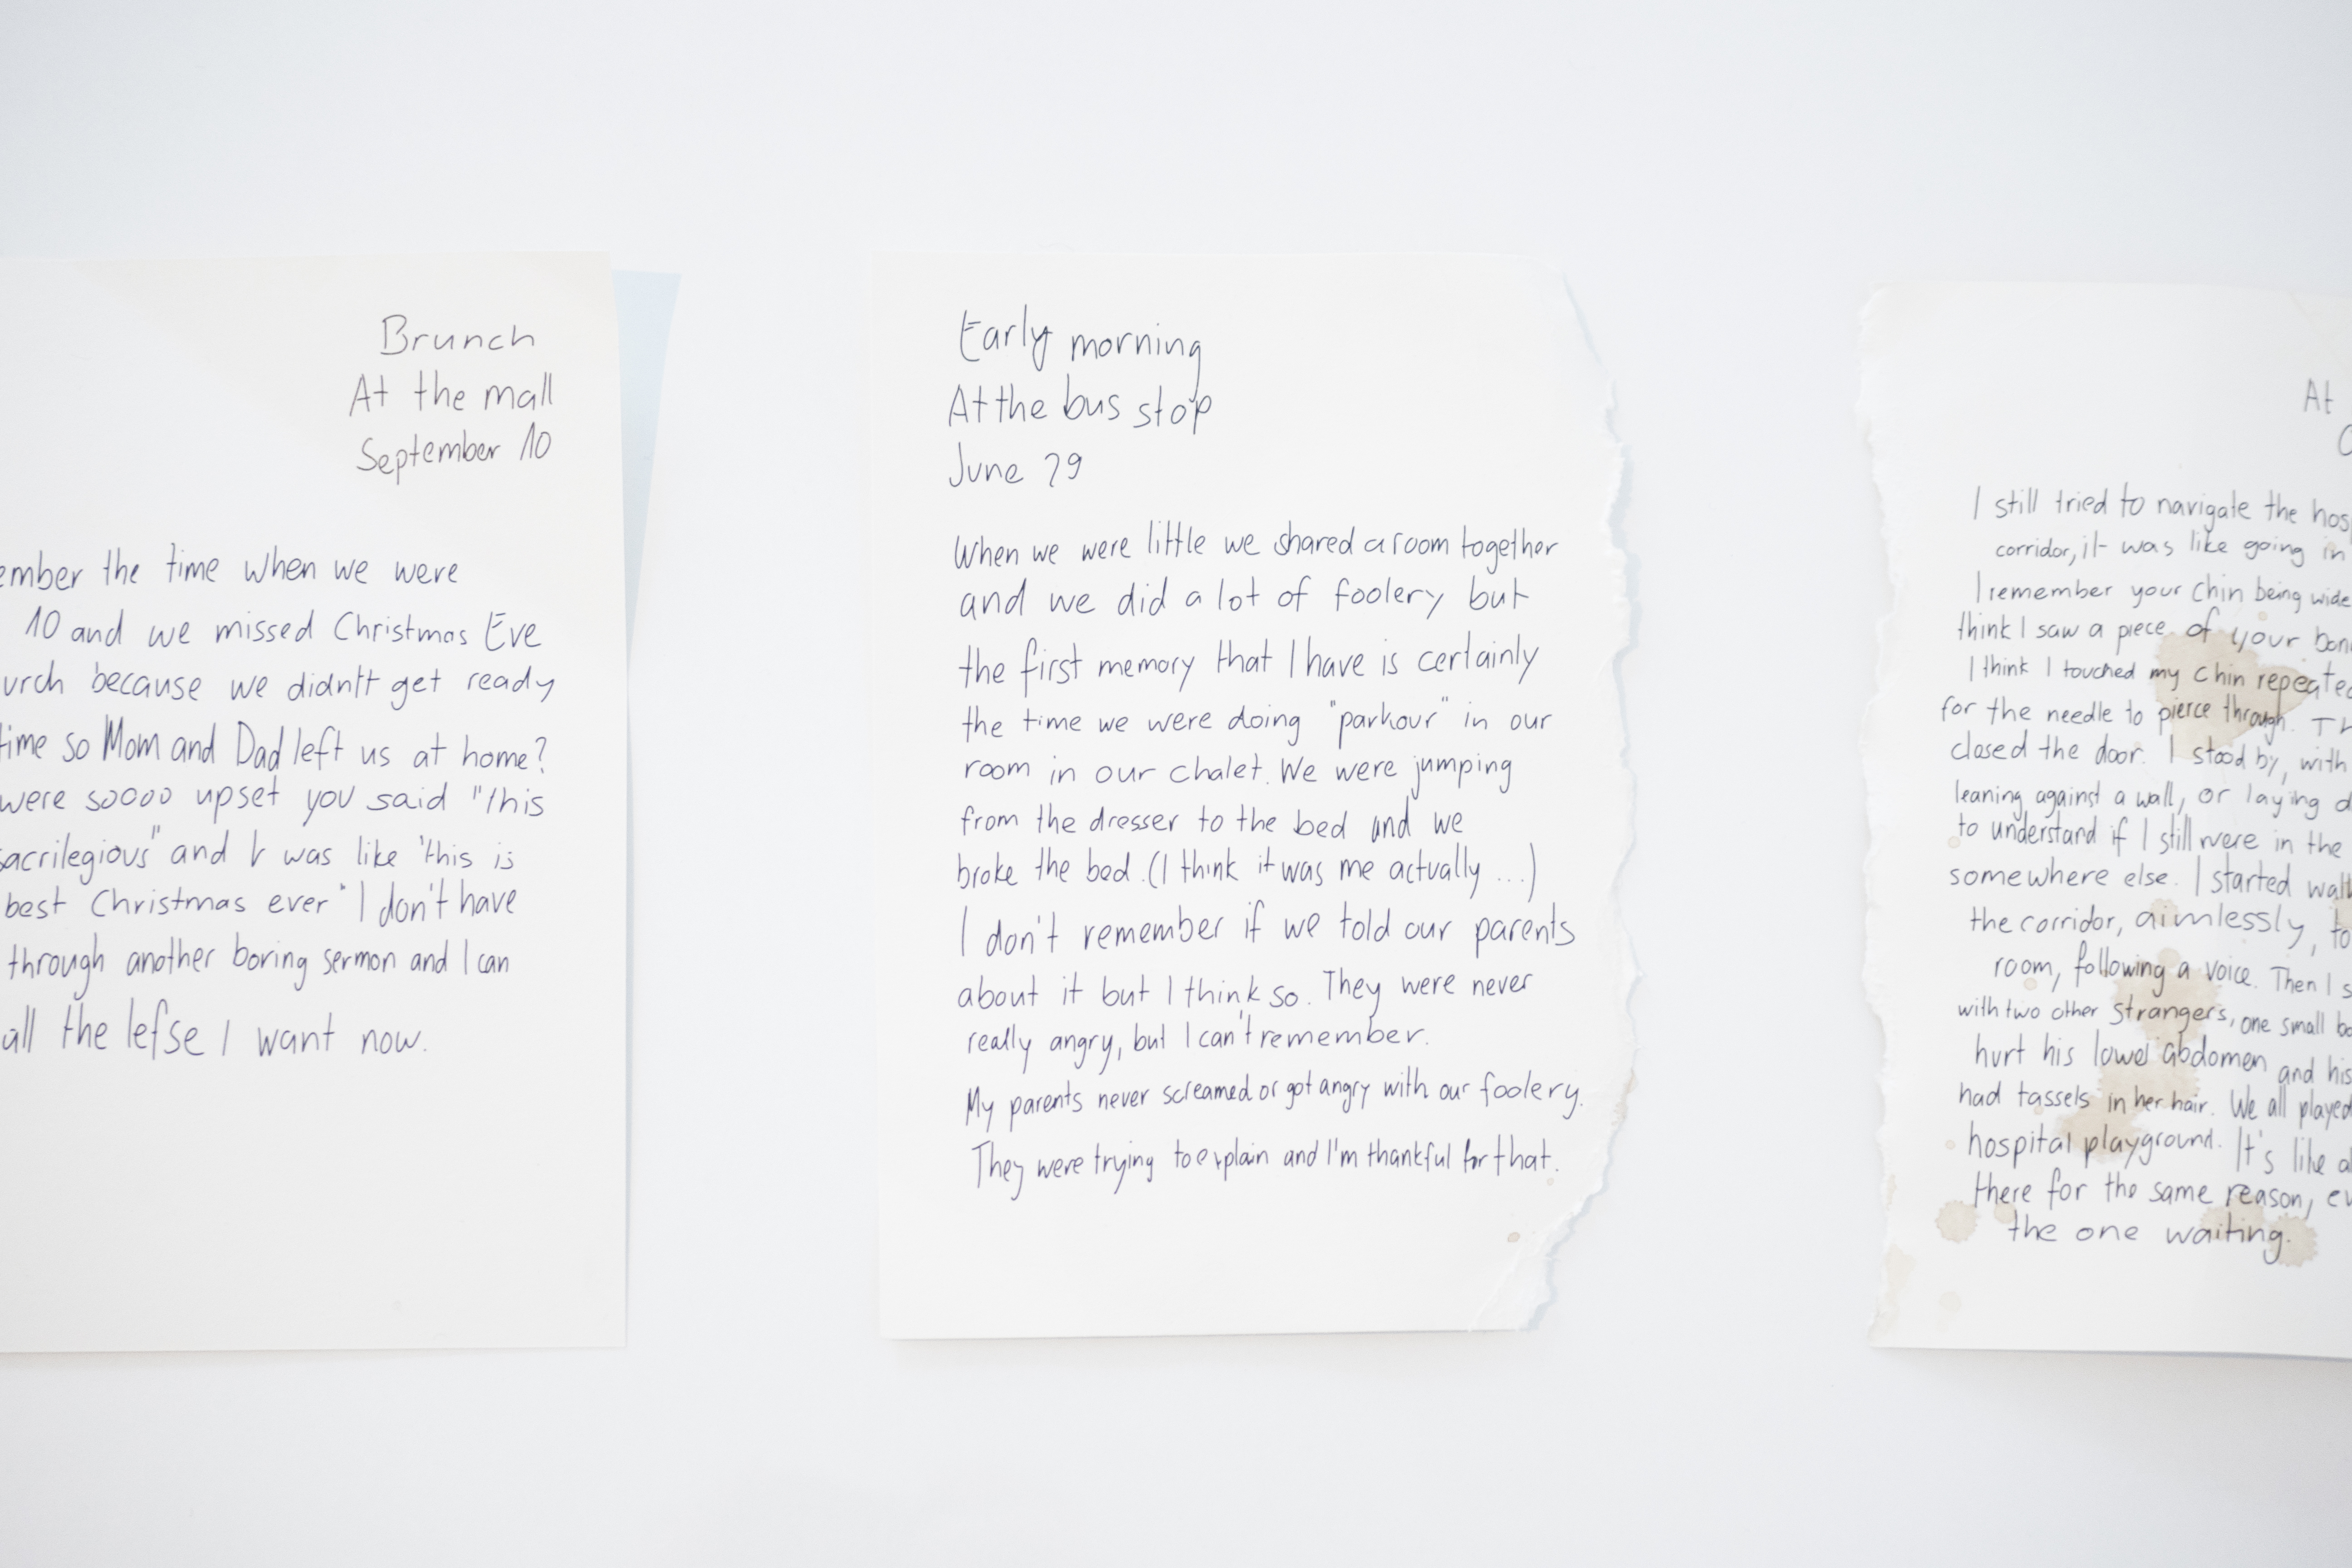 Brunch
At the mall
September 10
ember the time when we were
10 and we missed Christmas Eve
urch because we didn't get ready
time so Mom and Dad left us at home?
were soooo upset you said "this
sacrilegious" and I was like "this is
best Christmas ever" I don't have
through another boring sermon and I can
all the lefse I want now.
Early morning
At the bus stop
June 29
When we were little we shared a room together
and we did a lot of foolery but
the first memory that I have is certainly
the time we were doing "parkour" in our
room in our chalet. We were jumping
from the dresser to the bed and we
broke the bed. (I think it was me actually ...)
I don't remember if we told our parents
about it but I think so. They were never
really angry, but I can't remember.
My parents never screamed or got angry with our foolery.
They were trying to explain and I'm thankful for that.
At
I still tried to navigate the hos
corridor, it was like going in
I remember your chin being wide
think I saw a piece of your bon
I think I touched my chin repeated
for the needle to pierce through. Th
closed the door. I stood by, with
leaning against a wall, or laying d
to understand if I still were in the
somewhere else. I started walk
the corridor, aimlessly, to
room, following a voice. Then I s
with two other strangers, one small bo
hurt his lower abdomen and his
had tassels in her hair. We all played
hospital playground. It's like al
there for the same reason, ev
the one waiting.